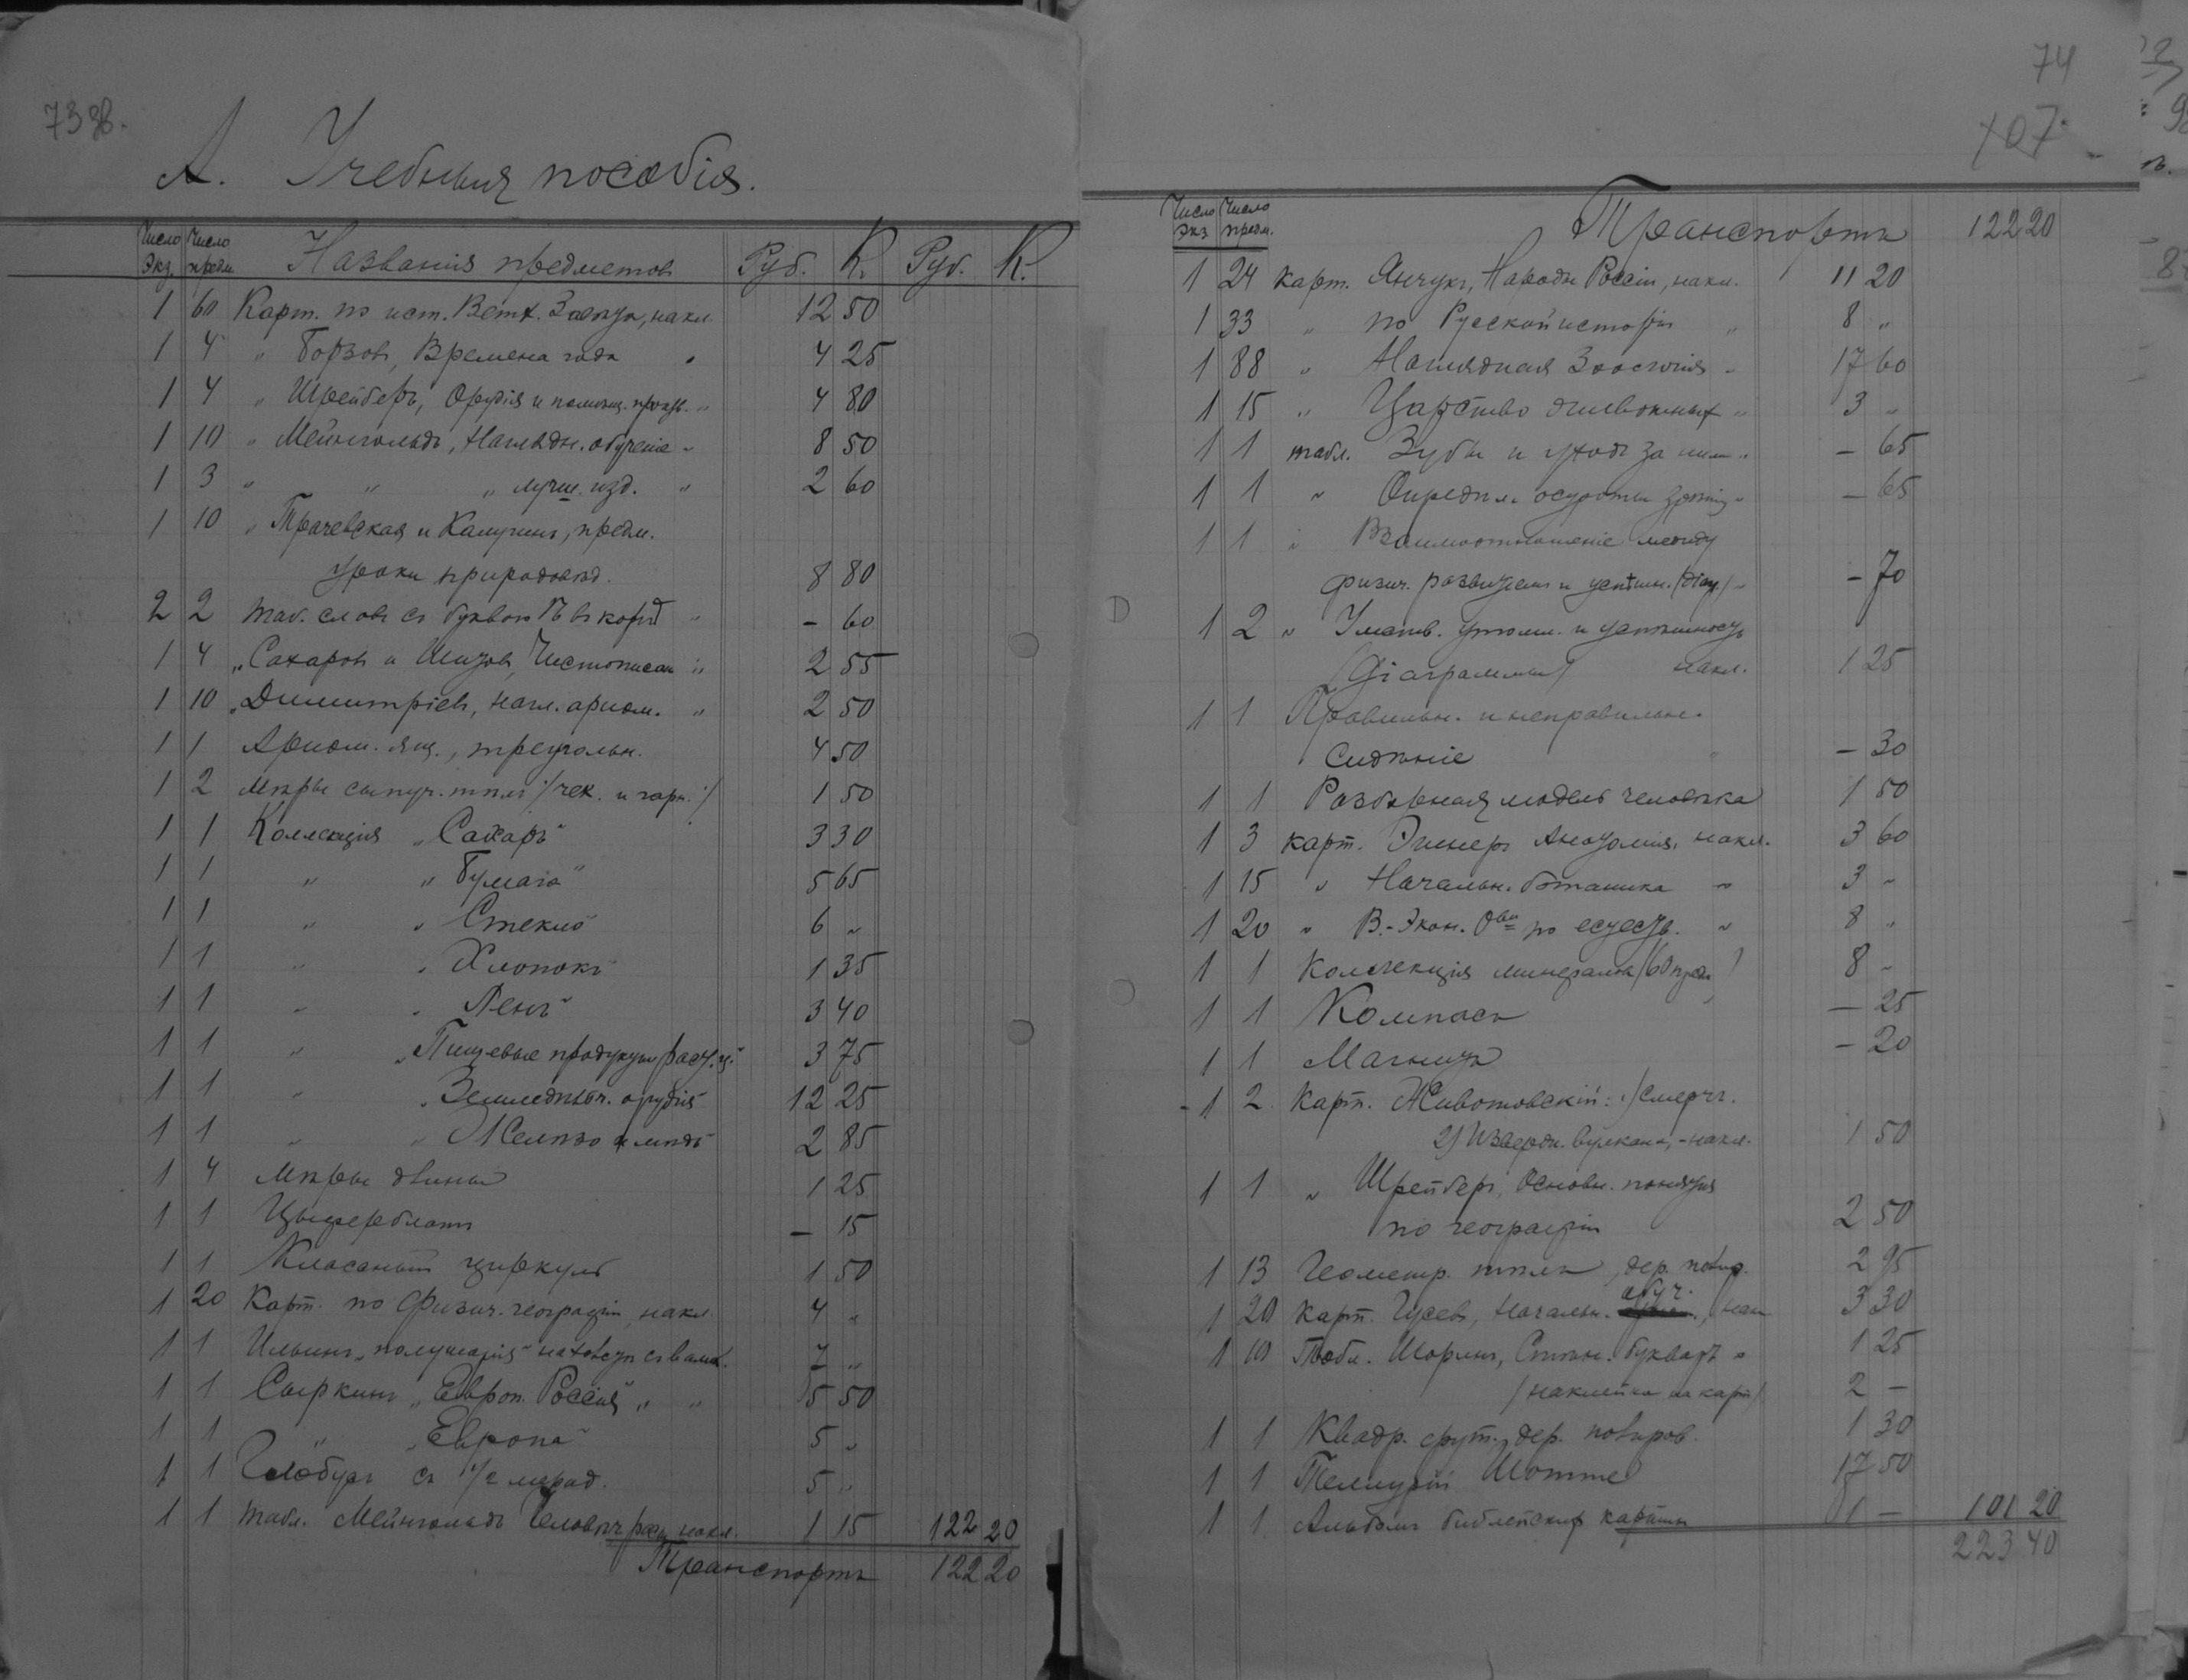 73 об.
А. Учебныя пособія.
Число Экз. Число предм. Названія предметовъ Руб. К. Руб. К.
1 60 Карт. по ист. Ветх. Завѣта, накл. 12 50
1 4 „ Борзовъ, Времена года „ 4 25
1 4 „ Шрейберъ, Орудія и помощ. произв. „ 4 80
1 10 „ Мейнгольдъ, Наглядн. обученіе „ 8 50
1 3 „ „ „ лучш. изд. „ 2 60
1 10 „ Трачевская и Калугинъ, предм.
уроки природовѣд. 8 80
2 2 Таб. словъ съ буквою Ѣ въ корнѣ „ – 60
1 4 „ Сахаровъ и Шизовъ, Чистописан. „ 2 55
1 10 „ Димитріевъ, нагл. ариѳм. „ 2 50
1 1 Ариѳм. ящ., треугольн. 4 50
1 2 Мѣры сыпуч. тѣлъ /чек. и гарн./ 1 50
1 1 Коллекція „Сахаръ“ 3 30
1 1 „ „Бумага“ 5 65
1 1 „ „Стекло“ 6 „
1 1 „ „Хлопокъ“ 1 35
1 1 „ „Ленъ“ 3 40
1 1 „ „Пищевые продукты раст. ц.“ 3 75
1 1 „ „Земледѣльч. орудія“ 12 25
1 1 „ „Желѣзо и мѣдь“ 2 85
1 4 Мѣры длины 1 25
1 1 Цыферблатъ – 15
1 1 Класаный циркуль 1 50
1 20 Карт. по физич. географіи, накл. 4 „
1 1 Ильинъ „полушарія“ на холсту съ валик. 7 „
1 1 Сыркинъ „Европ. Россія“ „ „ 5 50
1 1 „ „Европа“ 5 „
1 1 Глобусъ съ 1/2 мерид. 5 „
1 1 табл. Мейнгольдъ Человѣч. расы накл. 1 15 122 20
Транспортъ 122 20
74
107
Число экз Число предм. Транспортъ 122 20
1 24 Карт. Янчукъ, Народы Россіи, накл. 11 20
1 33 „ по Русской исторіи „ 8 „
1 88 „ Наглядная Зоологія „ 17 60
1 15 „ Царство животныхъ „ 3 „
1 1 табл. Зубы и уходъ за ними „ – 65
1 1 „ Опредѣл. остроты зрѣнія „ – 65
1 1 „ Взаимоотношеніе между
физич. развитіемъ и успѣшн. /діагр./ – – 70
1 2 „ Умств. утомл. и успѣшность
/Діаграммы/ накл. 1 25
1 1 Правильн. и неправильн.
Сидѣніе „ – 30
1 1 Разборная модель человѣка 1 50
1 3 карт. Эшнеръ Анатомія, накл. 3 60
1 15 „ Начальн. ботаника „ 3 „
1 20 „ В.-Экон. Ова по естеств. „ 8 „
1 1 Коллекція минераловъ /60 пред./ 8 „
1 1 Компасъ – 25
1 1 Магнитъ – 20
1 2 Карт. Животовскій: 1/ Смерчъ.
2/ Изверж. вулкана, – накл. 1 50
1 1 „ Шрейберъ, Основн. понятія
по географіи 2 50
1 13 Геометр. тѣла, дер. полир. 2 95
1 20 карт. Гусевъ, Начальн. обуч., нак 3 30
1 10 Табл. Шоринъ, Стѣн. букварь „ 1 25
/наклейка на карт/ 2 –
1 1 Квадр. фут., дер. полиров. 1 30
1 1 Теллурій Шотте 17 50
1 1 Альбомъ библейскихъ картинъ 1 – 101 20
223 40